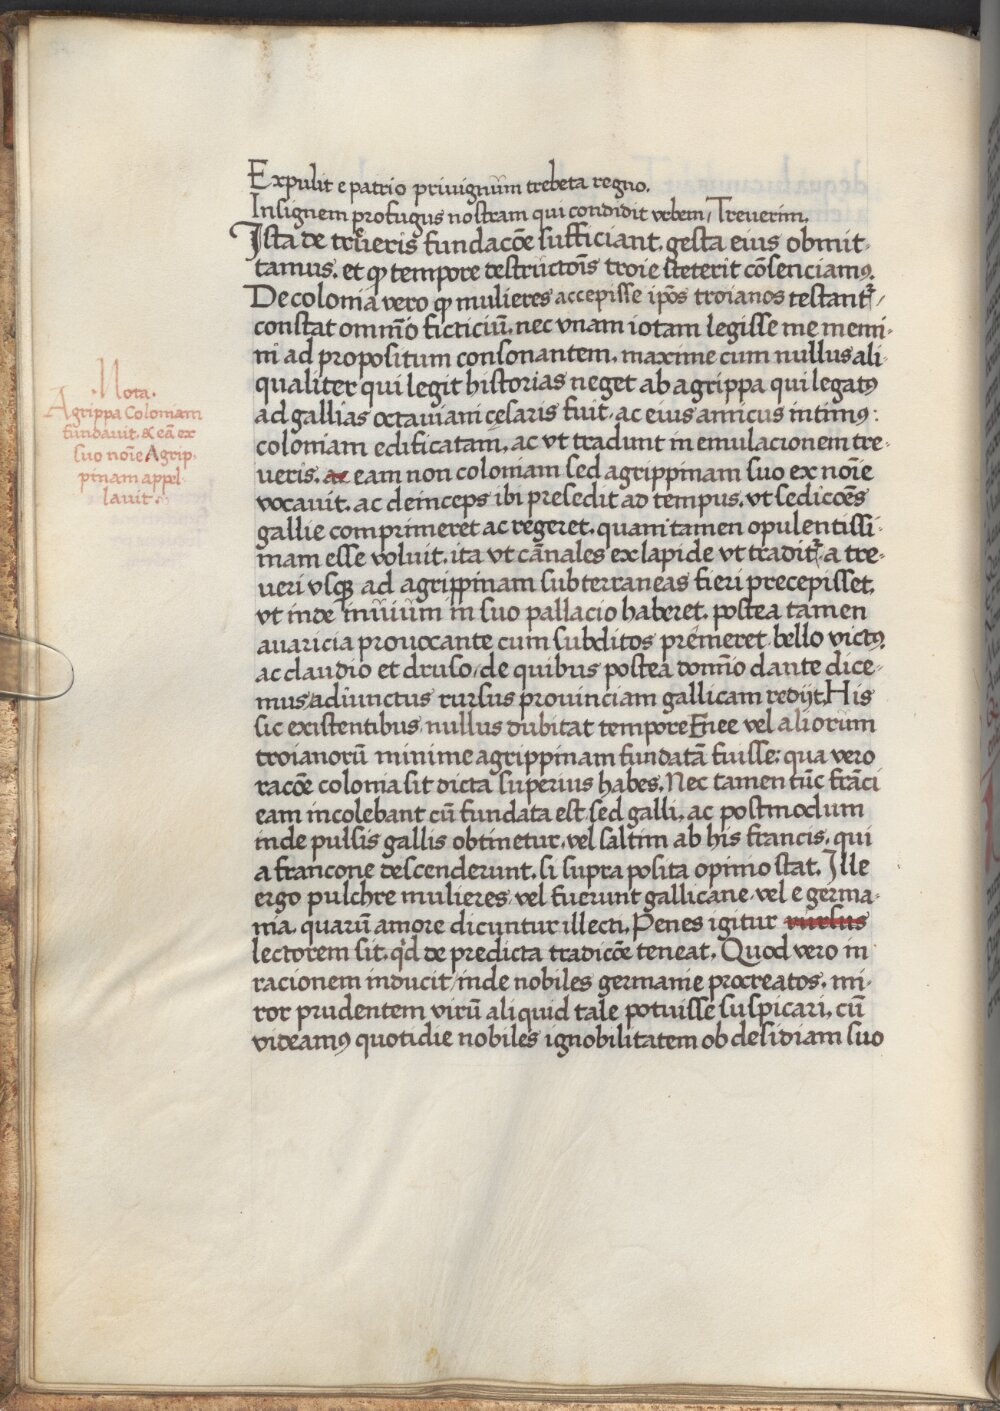 Expulit e patrio privignum trebeta regno.
Insignem profugus nostram qui condidit vrbem, Treuerim.
Ista de treueris fundacōe sufficiant, gesta eius obmit-
tamus. et qͥ tempore destructoīs troie steterit cōsenciamꝰ.
De colonia vero qͥ mulieres accepisse ip̄os troianos testant᷑,
constat omnīo ficticiū. nec vnam iotam legisse me memi-
ni ad propositum consonantem, maxime cum nullus ali-
qualiter qui legit historias neget ab agrippa qui legatꝰ
ad gallias octauiani cesaris fuit. ac eius amicus intimꝰ:
coloniam edificatam, ac vt tradunt in emulacionem tre-
ueris. ac eam non coloniam sed agrippinam suo ex noīe
vocauit. ac deinceps ibi presedit ad tempus. vt sediccōes
gallie comprimeret ac regeret. quam tamen opulentissi-
mam esse voluit. ita vt cānales ex lapide vt tradit᷑ a tre-
ueri vsqꝫ ad agrippinam subterraneas fieri precepisset,
vt inde mūium in suo pallacio haberet. postea tamen
auaricia prouocante cum subditos premeret bello victꝰ.
ac claudio et druso, de quibus postea domīo dante dice-
mus adiunctus rursus prouinciam gallicam redijt. His
sic existentibus nullus dubitat tempore Enee vel aliorum
troianorū minime agrippinam fundatā fuisse: qua vero
racōe colonia sit dicta superius habes. Nec tamen tūc frāci
eam incolebant cū fundata est sed galli. ac postmodum
inde pulsis gallis obtinetur. vel saltim ab his francis. qui
a francone descenderunt. si supra posita opinio stat. Ille
ergo pulchre mulieres vel fuerunt gallicane vel e germa-
nia. quarū amore dicuntur illecti. Penes igitur rursus
lectorem sit. qͥd de predicta tradicōe teneat. Quod vero in
racionem inducit inde nobiles germanie procreatos. mi-
ror prudentem virū aliquid tale potuisse suspicari, cū
videamꝰ quotidie nobiles ignobilitatem ob desidiam suo
.Nota.
Agrippa Coloniam
fundauit. & eā ex
suo noīe Agrip-
pinam appel-
lauit.